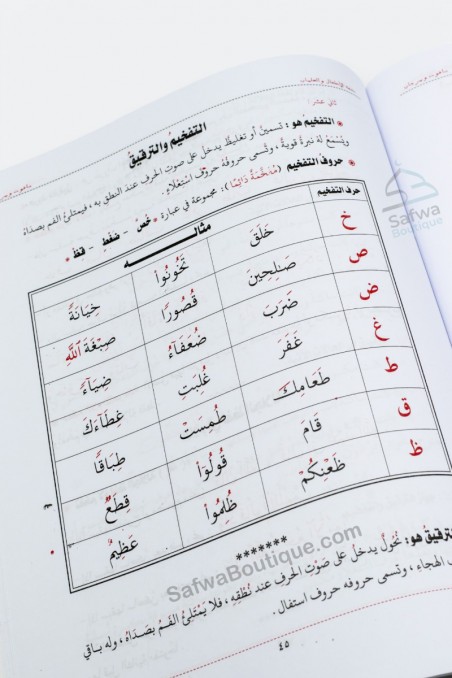 ثاني عشر :
التفخيم والترقيق
* التفخيم هو : تسمين أو تغليظ يدخل على صوت الحرف عند النطق به ، فيمتلئ الفم بصداه
ويسمع له نبرة قوية ، وتسمى حروفه حروف استعلاء .
* حروف التفخيم (مفخمة دائما) : مجموعة في عبارة " خص - ضغط - قظ "
حرف التفخيم مثاله
خ خَلَقَ تَخُونُوا۟ خِيَانَةً
ص صَـٰلِحِينَ قُصُورًا صِبْغَةَ ٱللَّهِ
ض ضَرَبَ ضُعَفَآءُ ضِيَآءً
غ غَفَرَ غُلِبَتِ غِطَآءَكَ
ط طَعَامِكَ طُمِسَتْ طِبَاقًا
ق قَامَ قُولُوٓا۟ قِطَعٌ
ظ ظَعْنِكُمْ ظُلِمُوا۟ عَظِيمٌ
*******
الترقيق هو : نحول يدخل على صوت الحرف عند نطقه ، فلا يمتلئ الفم بصداه ، وله باقي
الهجاء ، وتسمى حروفه حروف استفال .
٤٥
Safwa
Boutique
SafwaBoutique.com
SafwaBoutique.com